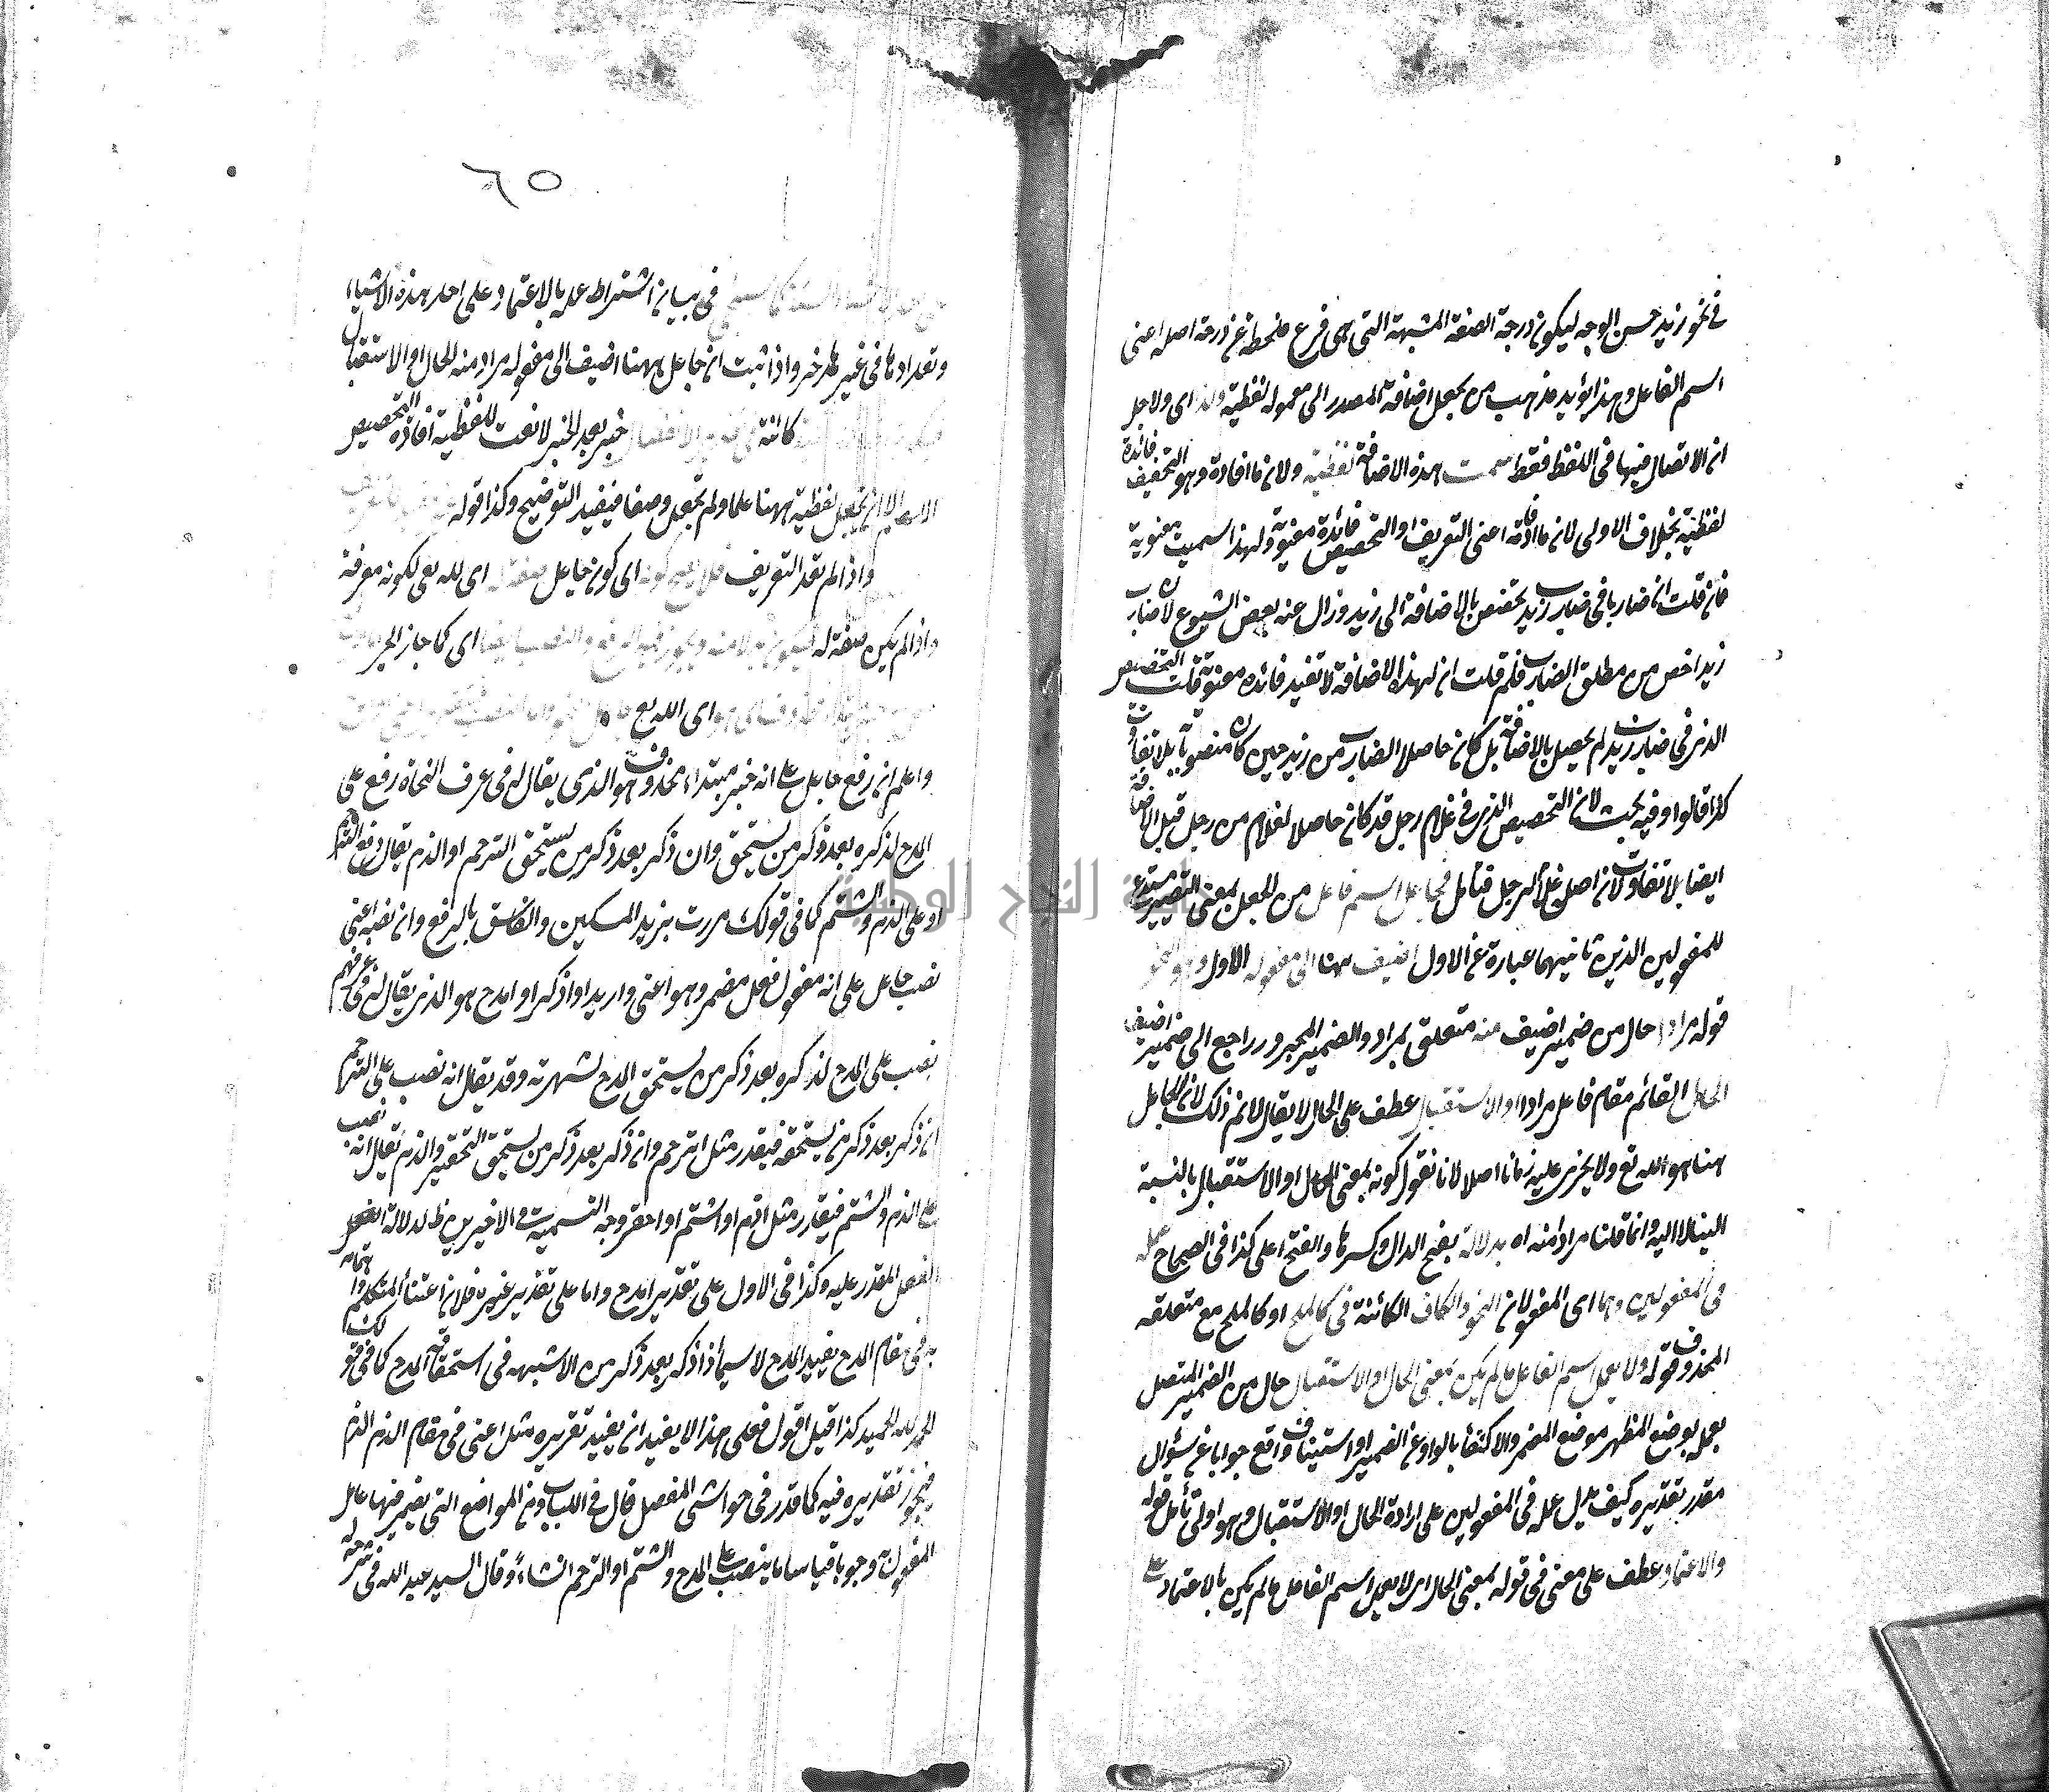 في نحو زيد حسن الوجه ليكون درجة الصفة المشبهة التي هي فرع منحطة عن درجة اصله اعني
اسم الفاعل وهذا يؤيد مذهب من يجعل اضافة المصدر الى معموله لفظية ولذا اى ولاجل
ان الاتصال فيها في اللفظ فقط سميت هذه الاضافة لفظية ولان ما افادة وهو التخفيف فائدة
لفظية بخلاف الاولى لان ما افادته اعني التعريف او التخصيص فائدة معنوية ولهذا سميت معنوية
فان قلت ان ضاربا في ضارب زيد تخصص بالاضافة الى زيد وزال عنه بعض الشيوع لان ضارب
زيد اخص من مطلق الضارب فلم قلت ان لهذه الاضافة لا تفيد فائدة معنوية قلت التخصيص
الذي في ضارب زيد لم يحصل بالاضافة بل كان حاصلا للضارب من زيد حين كان منصوبا به بلا تفاوت
كذا قالوا وفيه بحث لان التخصيص الذي في غلام رجل قد كان حاصلا لغلام من رجل قبل الاضافة
ايضا بلا تفاوت لان اصله غلام لرجل فتأمل فجاعل اسم فاعل من الجعل بمعنى التصيير مستدع
للمفعولين الذين ثانيهما عبارة عن الاول اضيف ههنا الى مفعوله الاول وهو النحو
قوله مرادا حال من ضمير اضيف منه متعلق بمراد والضمير المجرور راجع الى ضمير اضيف
الحال القائم مقام فاعل مرادا او الاستقبال عطف على الحال لا يقال لانم ذلك لان الجاعل
هنا هو الله تع ولا يجري عليه زمانا اصلا لانا نقول كونه بمعنى الحال او الاستقبال بالنسبة
الينا لا اليه وانما قلنا مرادا منه اه بدلالة بفتح الدال وكسرها والفتح اعلى كذا في الصحاح عمله
في المفعولين وهما اى المفعولان النحو والكاف الكائنة في كالملح او كالملح مع متعلقه
المحذوف قوله ولا يعمل اسم الفاعل ما لم يكن بمعنى الحال او الاستقبال حال من الضمير المتصل
بعمله بوضع المظهر موضع المضمر والاكتفا بالواو عن الضمير او استيناف واقع جوابا عن سؤال
مقدر بتقديره كيف يدل عمله في المفعولين على ارادة الحال او الاستقبال وهو اولى تأمل قوله
والاعتماد عطف على معنى في قوله بمعنى الحال اى لا يعمل اسم الفاعل ما لم يكن بالاعتماد على
٦٥
في بيان اشتراط عمله بالاعتماد على احد هذه الاشياء
وتعدادها في غير هلم خر واذا ثبت ان جاعل ههنا اضيف الى مفعوله مراد منه الحال او الاستقبال
كائنة خبر بعد الخبر لا نعت للفظية افادة التخصيص
الا ان تجعل لفظية ههنا علما ولم تجعل وصفا فيفيد التوضيح وكذا قوله
واذا لم تفد التعريف فلا يصح كونه اى كون جاعل صفة له اى لله تعى لكونه معرفة
واذا لم يكن صفة له فيكون بدلا منه ويجوز فيه الرفع والنصب ايضا اى كما جاز الجر
اى الله تع
واعلم ان رفع جاعل على انه خبر مبتداء محذوف هو الذي يقال له في عرف النحاة رفع على
المدح لذكره بعد ذكر من يستحق وان ذكر بعد ذكر من يستحق الترحم او الذم يقال رفع الترحم
او على الذم والشتم كما في قولك مررت بزيد المسكين والفاسق بالرفع وان نصبه اعني
نصب جاعل على انه مفعول فعل مضمر وهو اعني واريد او اذكر او امدح هو الذي يقال له في عرفهم
نصب على المدح لذكره بعد ذكر من يستحق المدح لشهرته وقد يقال انه نصب على الترحم
ان ذكر بعد ذكر من يستحقه فيقدر مثل اترحم وان ذكر بعد ذكر من يستحق التحقير والذم يقال انه نصب
على الذم والشتم فيقدر مثل اذم او اشتم او احقر وجه التسمية في الاخيرين ظ لدلالة الفعل
الفعل المقدر عليه وكذا في الاول على تقدير امدح واما على تقدير غيره فلان اعتناء المتكلم واهتمامه
به في مقام المدح يفيد المدح لا سيما اذا ذكر بعد ذكر من لا شبهه في استحقاقه المدح كما في قولك
الحمد لله الحميد كذا قيل اقول فعلى هذا لا يفيد ان يفيد تقريره مثل اعني في مقام الذم الذم
فيجوز تقديره فيه كما قدر في حواشي المفصل قال في اللباب ومن المواضع التي يضمر فيها عامل
المفعول به وجوبا قياسا ما ينصب على المدح والشتم او الترحم انشاء وقال السيد عبد الله في شرحه